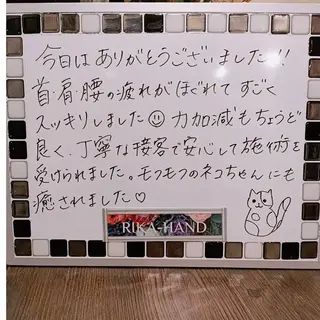 今日はありがとうございました!!
首・肩・腰の疲れがほぐれて すごく
スッキリしました☺ 力加減もちょうど
良く、丁寧な接客で安心して施術を
受けられました。モフモフのネコちゃんにも
癒されました♡
RIKA-HAND